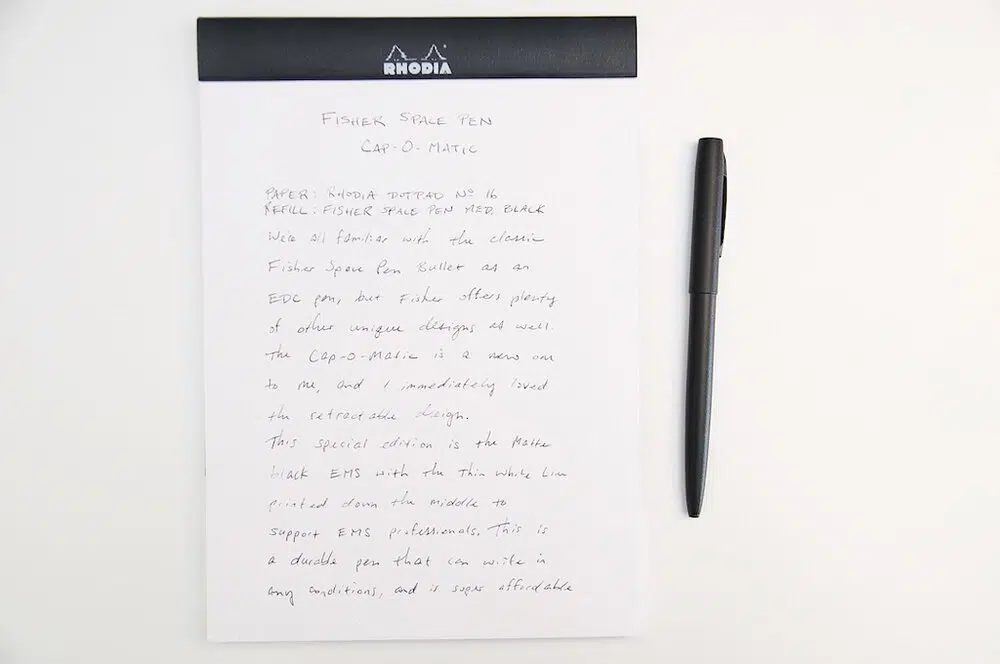 RHODIA
FISHER SPACE PEN
CAP-O-MATIC
PAPER: RHODIA DOTPAD Nº 16
REFILL: FISHER SPACE PEN MED. BLACK
We're all familiar with the classic
Fisher Space Pen Bullet as an
EDC pen, but Fisher offers plenty
of other unique designs as well.
The Cap-O-Matic is a new one
to me, and I immediately loved
the retractable design.
This special edition is the Matte
black EMS with the Thin White Line
printed down the middle to
support EMS professionals. This is
a durable pen that can write in
any conditions, and is super affordable